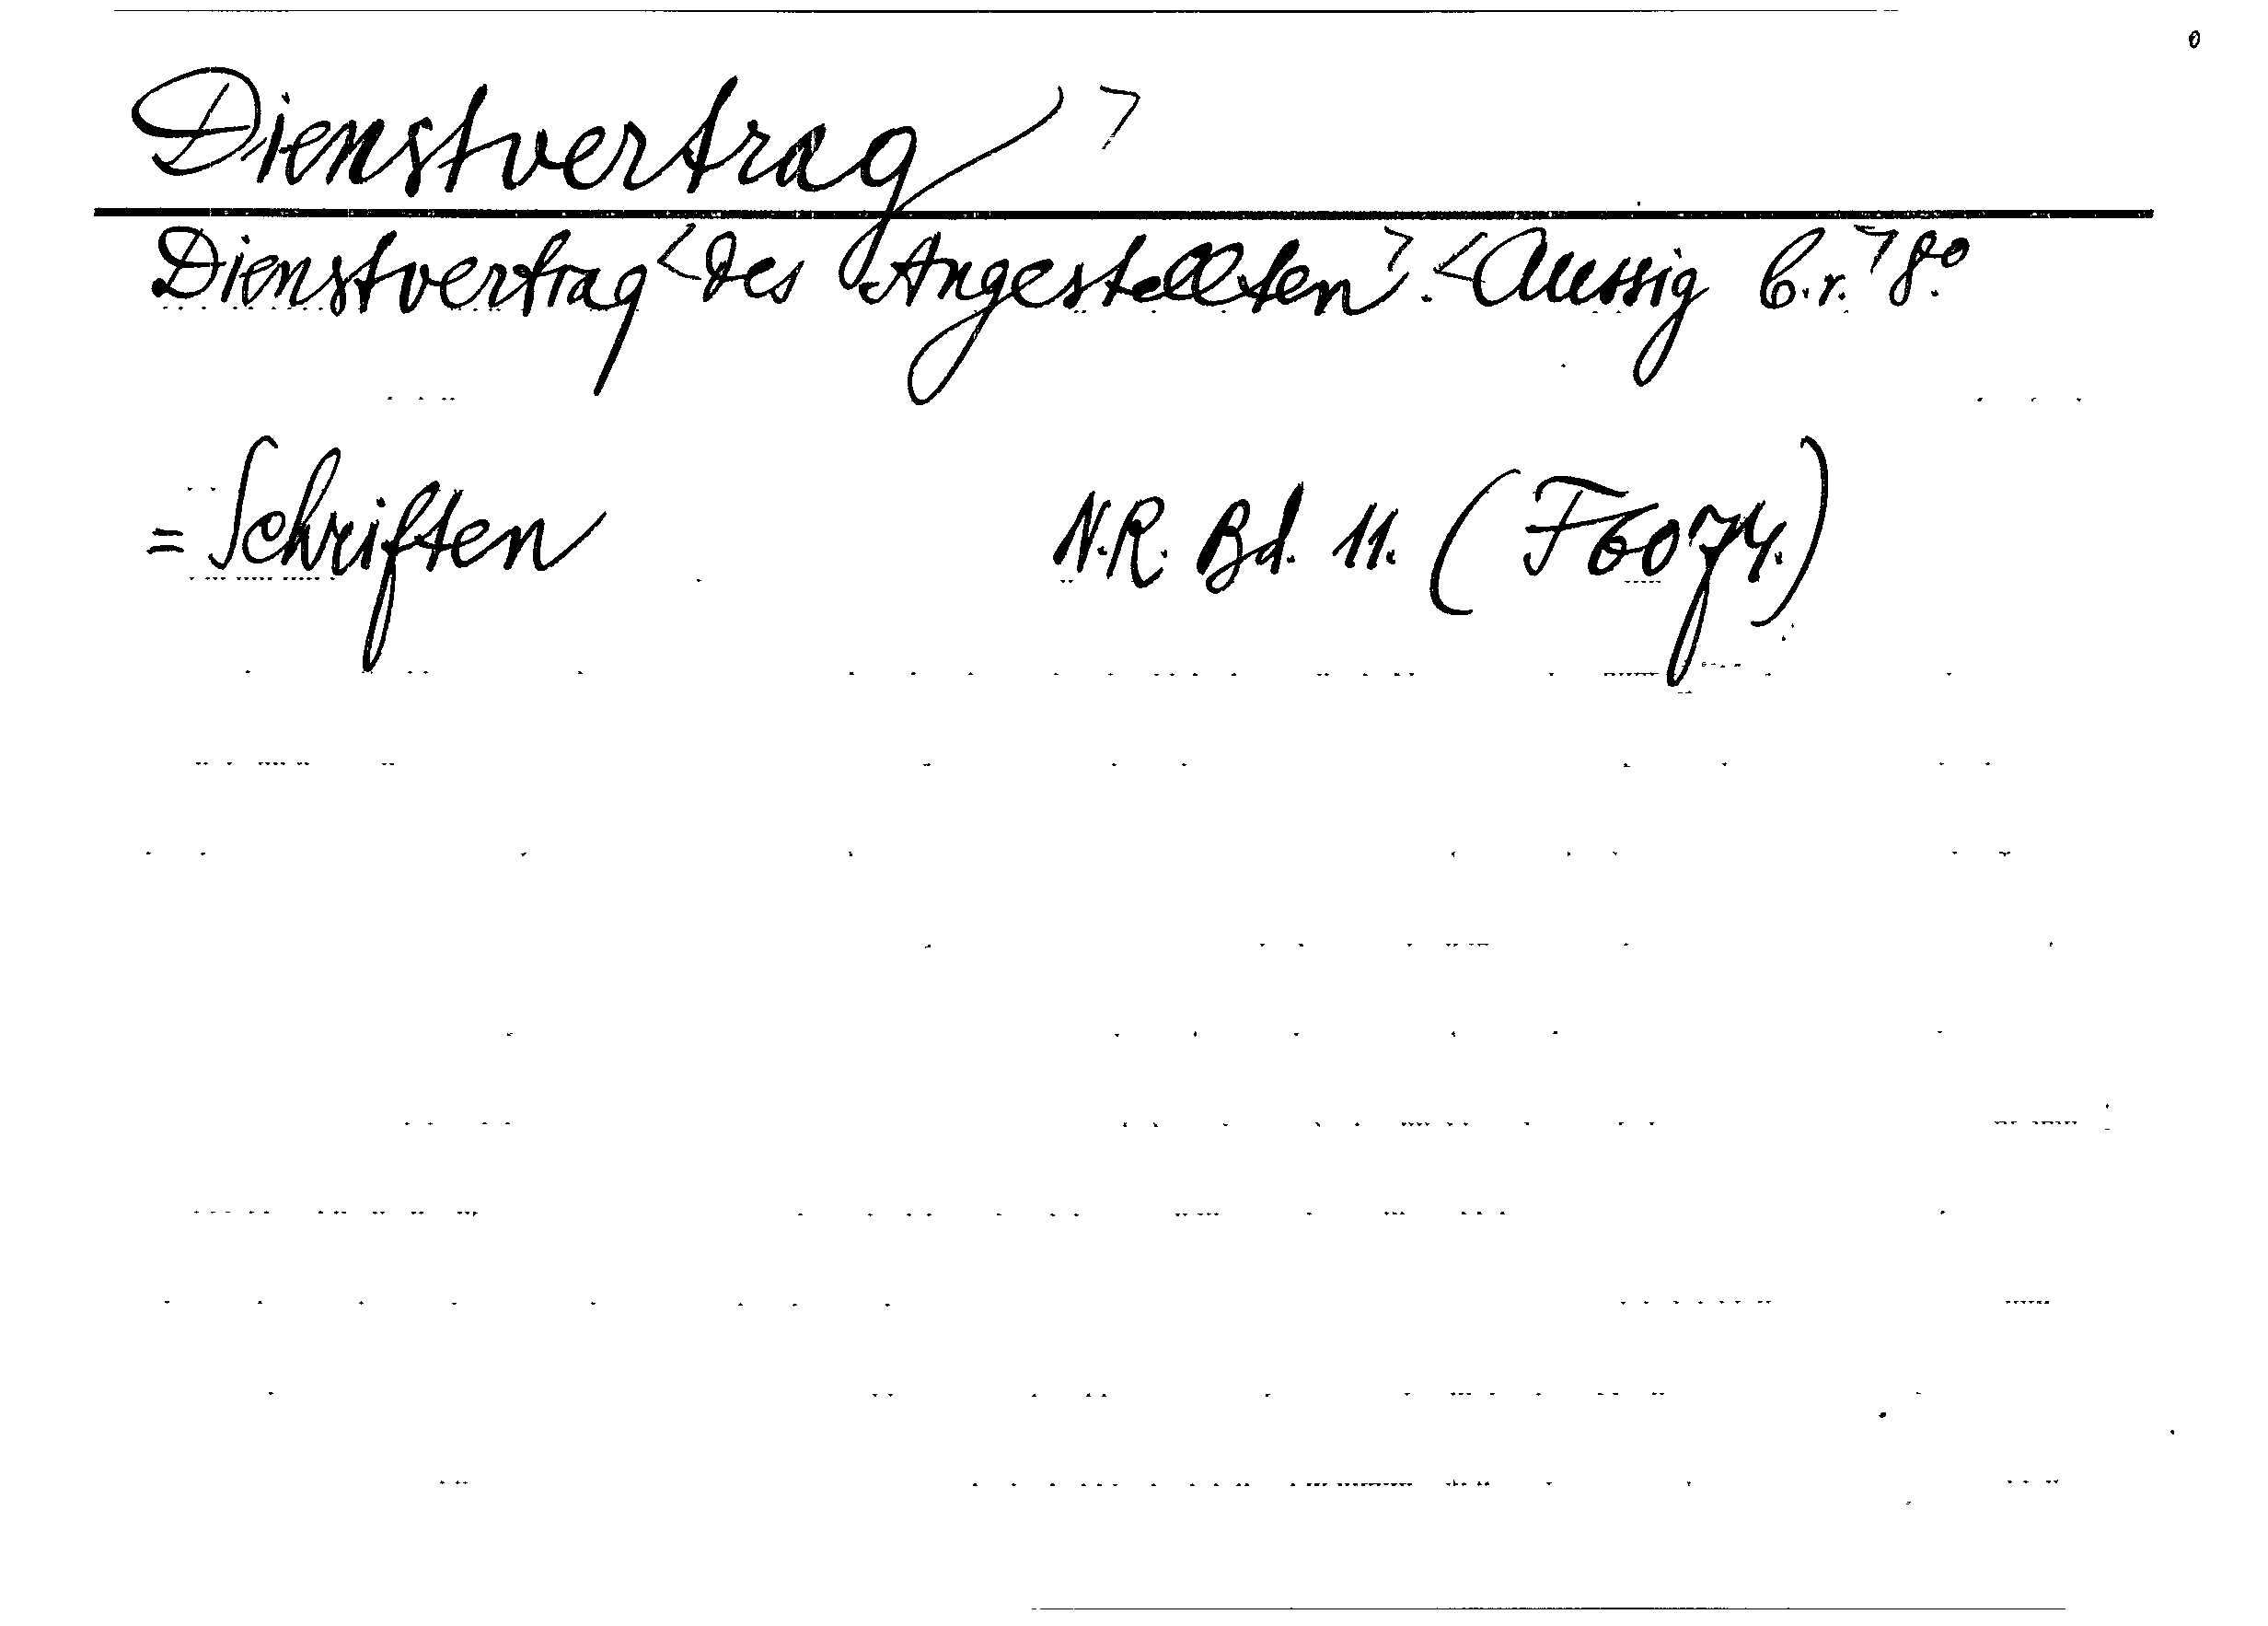 Dienstvertrag >
Dienstvertrag < des Angestellten >. < Aussig b.r. > 8.°
= Schriften N.R. Bd. 11. (F6074.)